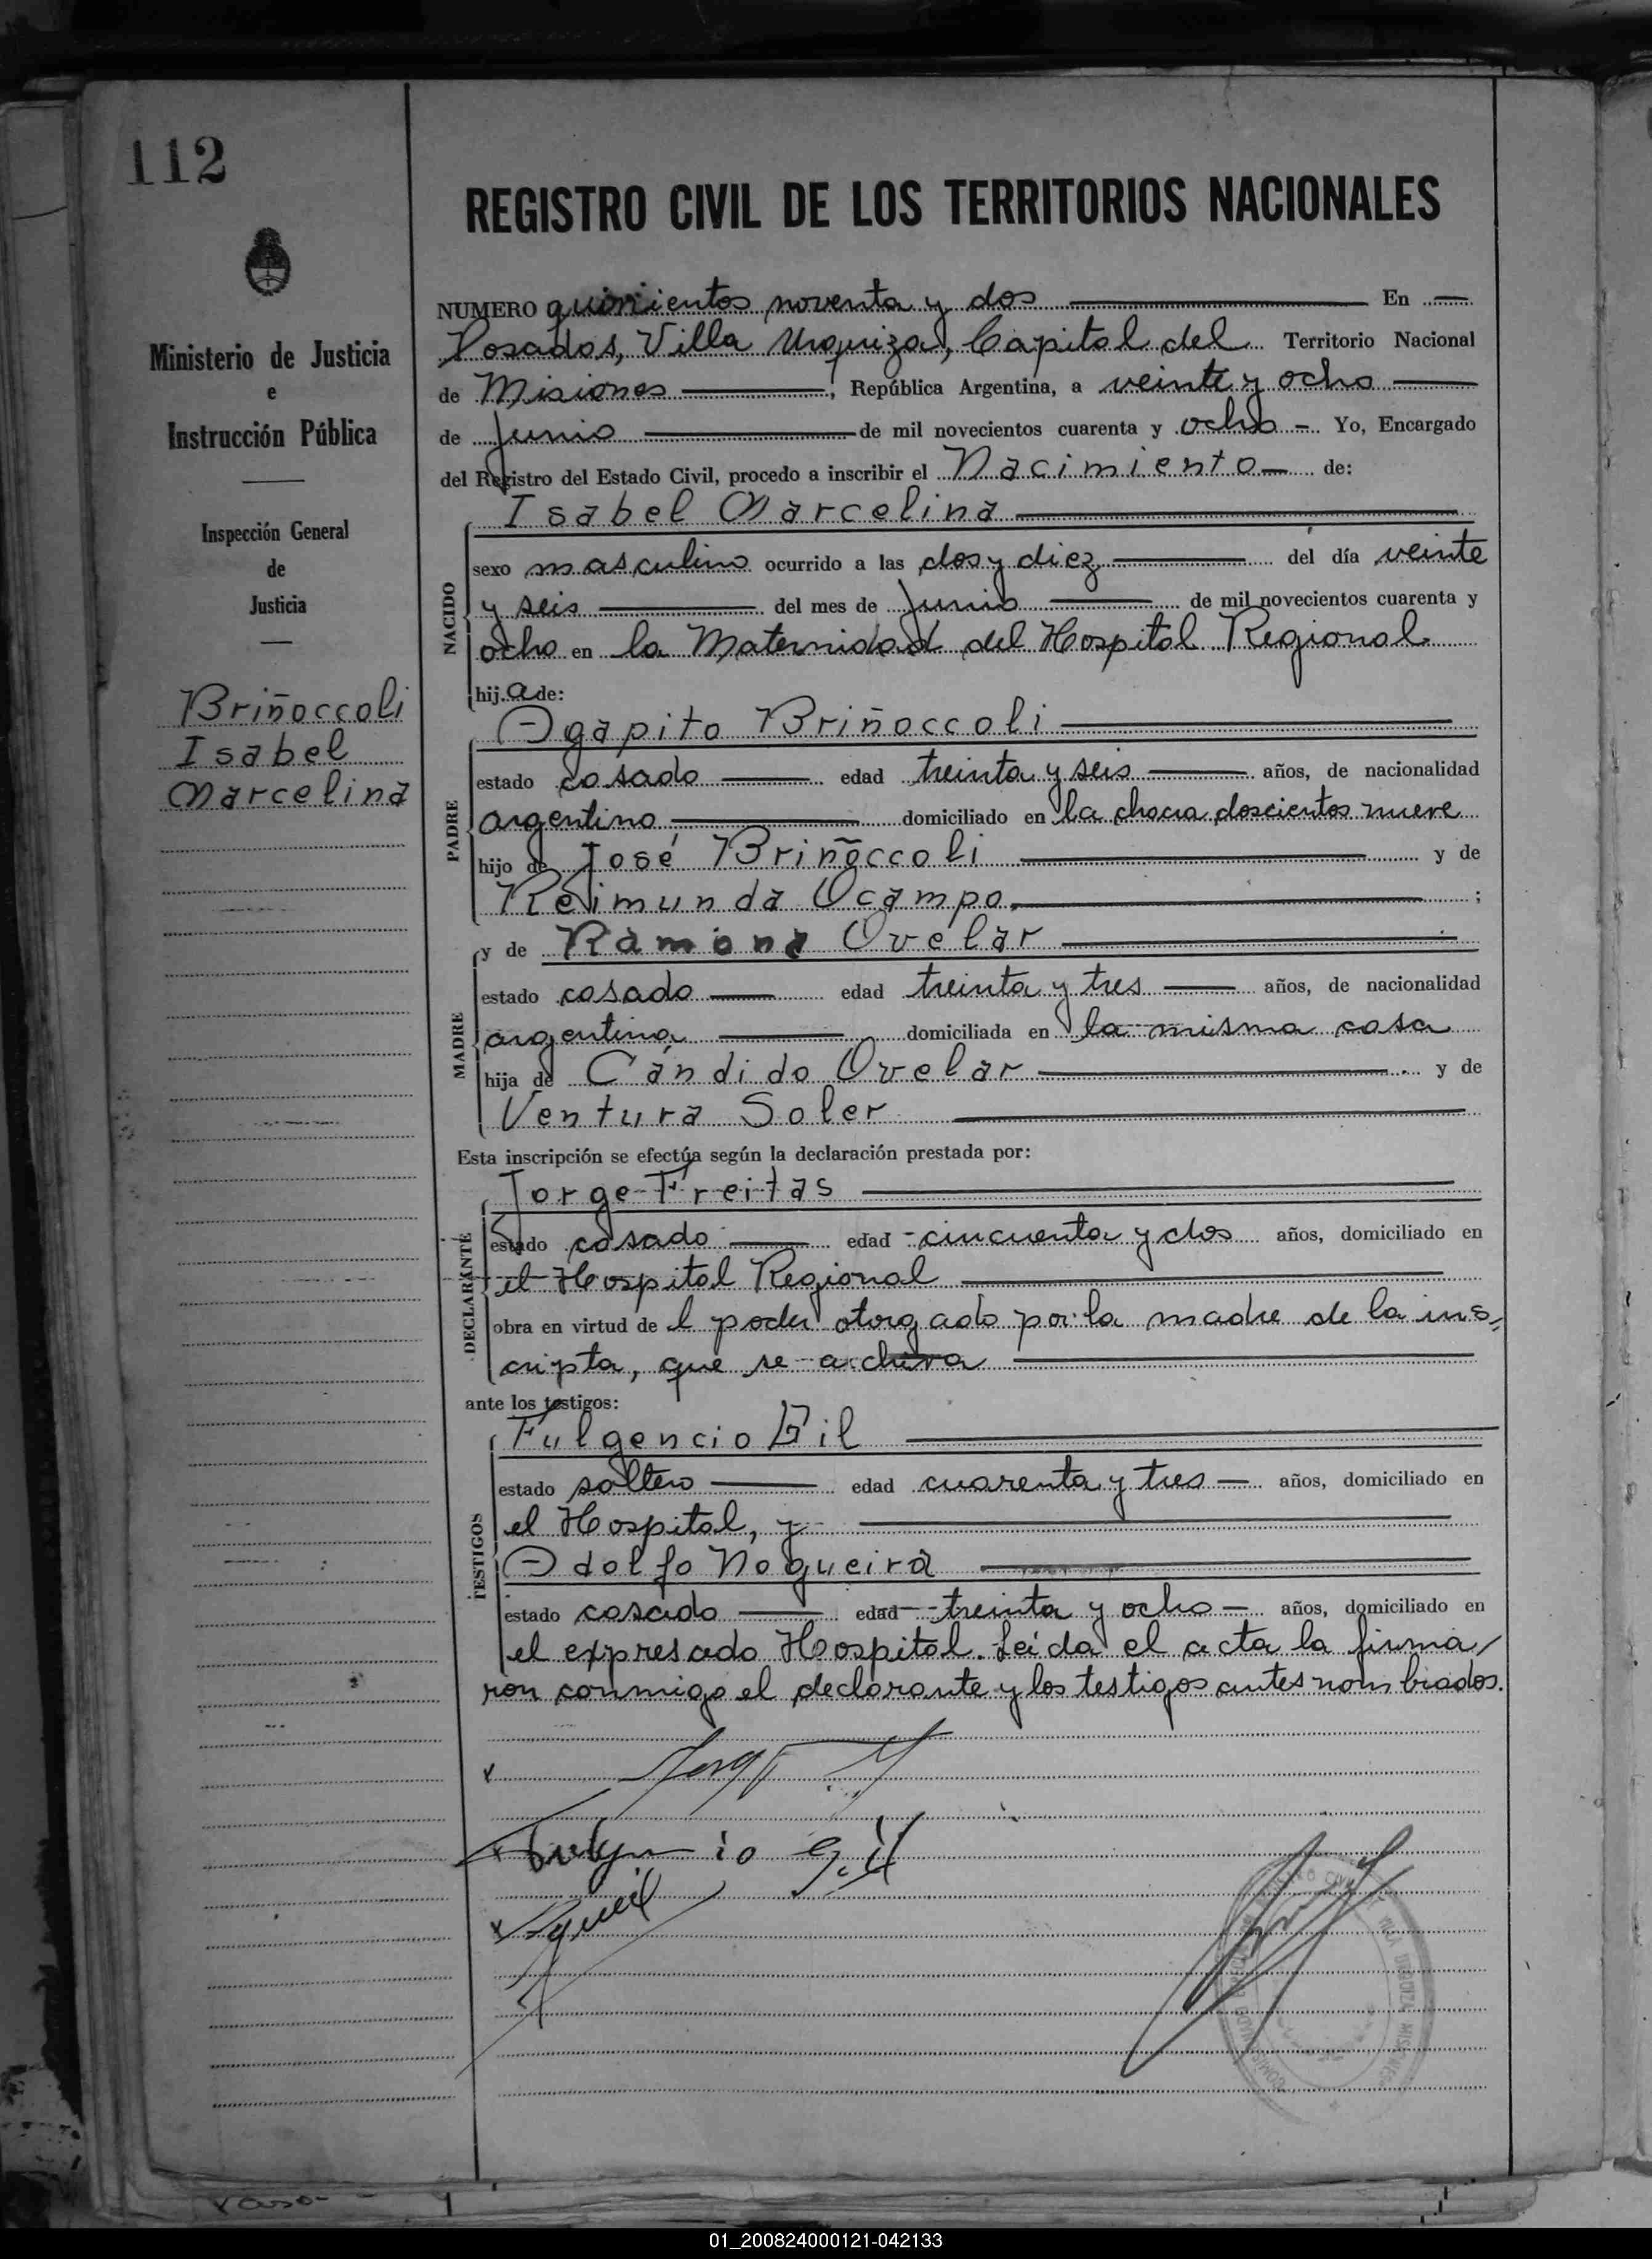 112
REGISTRO CIVIL DE LOS TERRITORIOS NACIONALES
Ministerio de Justicia
e
Instrucción Pública
Inspección General
de
Justicia
Briñoccoli
Isabel
Marcelina
NUMERO quinientos noventa y dos En
Posadas, Villa Urquiza, Capital del Territorio Nacional
de Misiones, República Argentina, a veinte y ocho
de Junio de mil novecientos cuarenta y ocho Yo, Encargado
del Registro del Estado Civil, procedo a inscribir el Nacimiento de:
NACIDO
Isabel Marcelina
sexo masculino ocurrido a las dos y diez del día veinte
y seis del mes de Junio de mil novecientos cuarenta y
ocho en la Maternidad del Hospital Regional
hij.a de:
PADRE
Agapito Briñoccoli
estado casado edad treinta y seis años, de nacionalidad
argentino domiciliado en la chacra doscientos nueve
hijo de José Briñoccoli y de
Reimunda Ocampo ;
MADRE
y de Ramona Ovelar
estado casado edad treinta y tres años, de nacionalidad
argentina domiciliada en la misma casa
hija de Cándido Ovelar y de
Ventura Soler
Esta inscripción se efectúa según la declaración prestada por:
DECLARANTE
Jorge Freitas
estado casado edad cincuenta y dos años, domiciliado en
el Hospital Regional
obra en virtud de l poder otorgado por la madre de la ins-
cripta, que se archiva
ante los testigos:
TESTIGOS
Fulgencio Gil
estado soltero edad cuarenta y tres años, domiciliado en
el Hospital, y
Adolfo Nogueira
estado casado edad treinta y ocho años, domiciliado en
el expresado Hospital. Leída el acta la firma/
ron conmigo el declarante y los testigos antes nombrados.
Fulgencio Gil
VILLA URQUIZA MISIONES
01_200824000121-042133